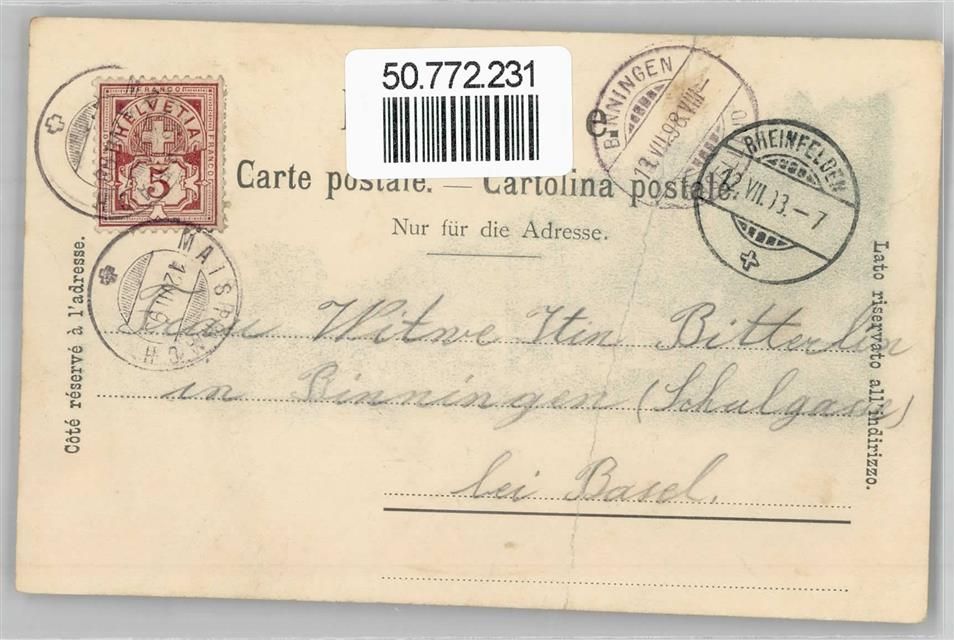 50.772.231
FRANCO
HELVETIA
FRANCO
5
BINNINGEN
13.VII.98.VIII–
RHEINFELDEN
12.VII.03.–7
Carte postale. — Cartolina postale.
Nur für die Adresse.
Côté réservé à l'adresse.
Lato riservato all'indirizzo.
MAISPRACH
12.VII.
Frau Witwe Itin Bitterlin
in Binningen (Schulgasse)
bei Basel.